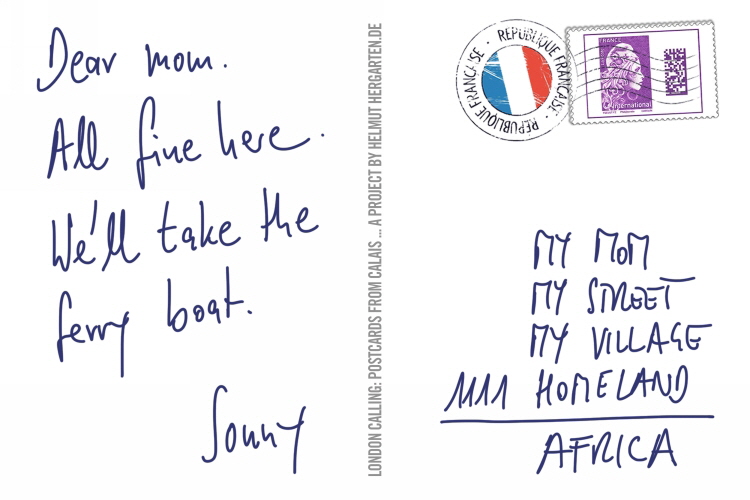 Dear mom.
All fine here.
We'll take the
ferry boat.
Sonny
LONDON CALLING: POSTCARDS FROM CALAIS ... A PROJECT BY HELMUT HERGARTEN.DE
REPUBLIQUE FRANÇAISE · REPUBLIQUE FRANÇAISE ·
FRANCE
international
MY MOM
MY STREET
MY VILLAGE
1111 HOMELAND
AFRICA